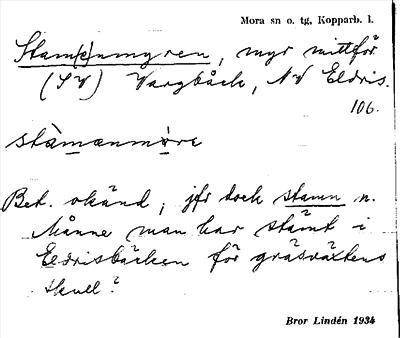 Mora sn o. tg, Kopparb. l.
Stam(p)nmyren, myr mittför
(SV) Vargbäck, NV Eldris.
106.
stàmanmỳre
Bet. okänd, jfr dock stamn n.
Månne man har stämt i
Eldrisbäcken för gräsväxtens
skull?
Bror Lindén 1934